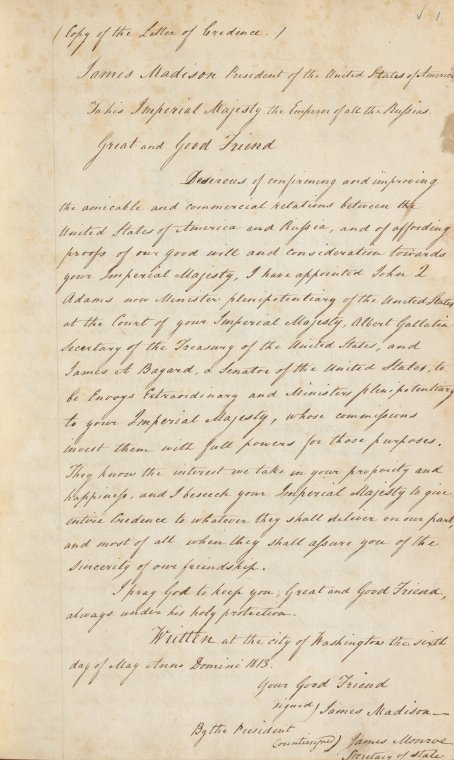 ( Copy of the Letter of Credence. )
James Madison President of the United States of America
To his Imperial Majesty the Emperor of all the Russias.
Great and Good Friend
Desirous of confirming and improving
the amicable and commercial relations between the
United States of America and Russia, and of affording
proofs of our good will and consideration towards
your Imperial Majesty, I have appointed John Q
Adams now Minister plenipotentiary of the United States
at the Court of your Imperial Majesty, Albert Gallatin
Secretary of the Treasury of the United States, and
James A Bayard, a Senator of the United States, to
be Envoys Extraordinary and Ministers plenipotentiary
to your Imperial Majesty, whose commissions
invest them with full powers for those purposes.
They know the interest we take in your prosperity and
happiness, and I beseech your Imperial Majesty to give
entire Credence to whatever they shall deliver on our part,
and most of all when they shall assure you of the
sincerity of our friendship.
I pray God to keep you, Great and Good Friend,
always under his holy protection.
Written at the city of Washington the sixth
day of May Anno Domini 1813.
Your Good Friend
signed) James Madison
By the President
(countersigned) James Monroe
Secretary of State